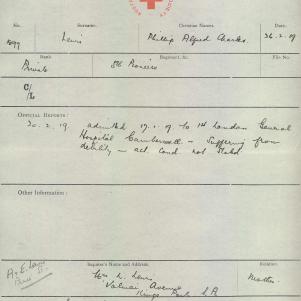 No. Surname. Christian Names. Date.
Lewis Phillip Alfred Charles 26.2.19
Rank. Regiment, &c. File No.
Private 5th Pioneers
C/
OFFICIAL REPORTS:
20.2.19 admitted 17.1.19 to 1st London General
Hospital Camberwell - Suffering from
debility - act. cond. not stated.
Other Information:
Inquirer's Name and Address. Relation.
Mrs L. Lewis Mother
Avenue
Kings Park S.A.